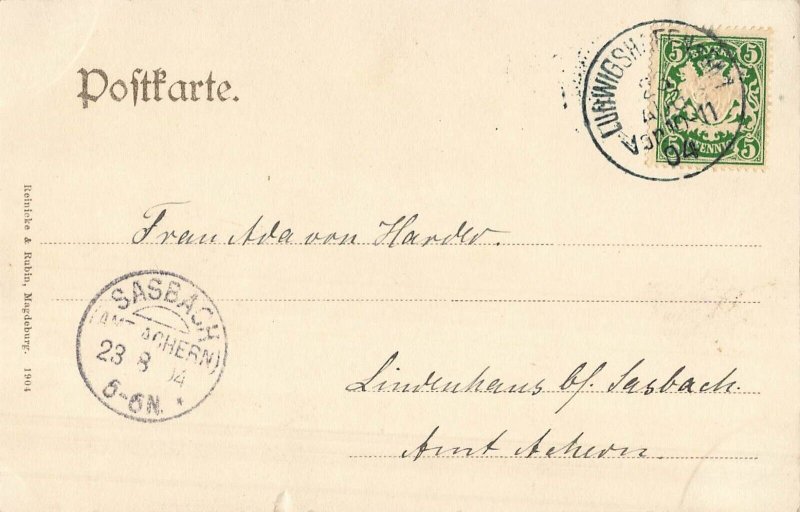 Postkarte.
LUDWIGSHAFEN
Vor 10-11
04
5 5
5 PFENNIG 5
Frau Ada von Harder.
SASBACH
(AMT ACHERN)
23 8 04
5-6N.
Lindenhaus b/. Sasbach.
Amt Achern.
Reinicke & Rubin, Magdeburg. 1904